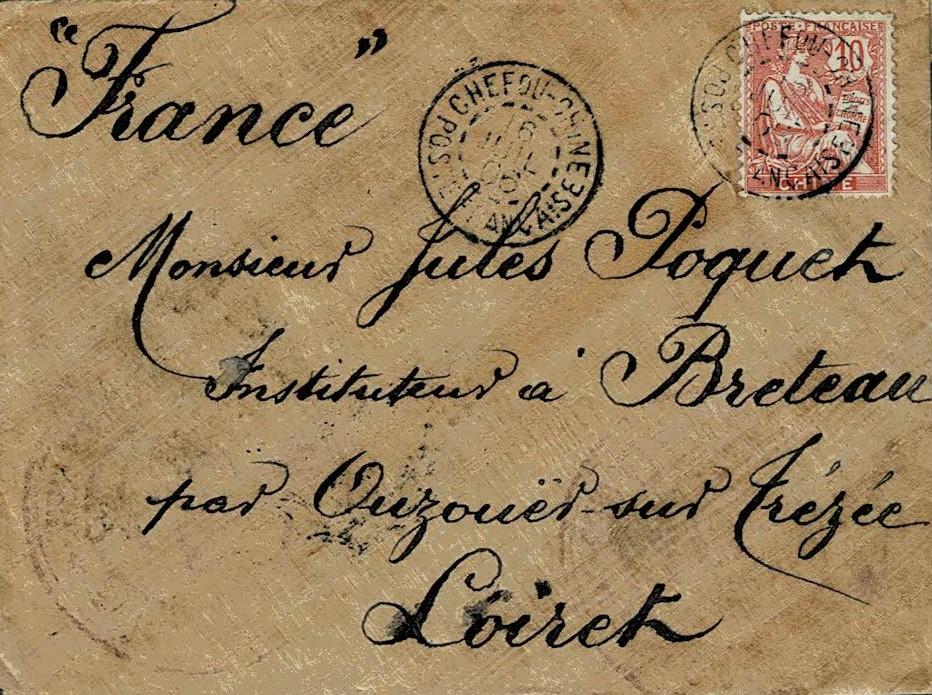 "France"
POSTE FRANÇAISE
10
CHINE
CHEFOU-CHINE
POSTE FRANÇAISE
CHEFOU
Monsieur Jules Poquet
Instituteur à Breteau
par Ouzouër-sur Trézée
Loiret